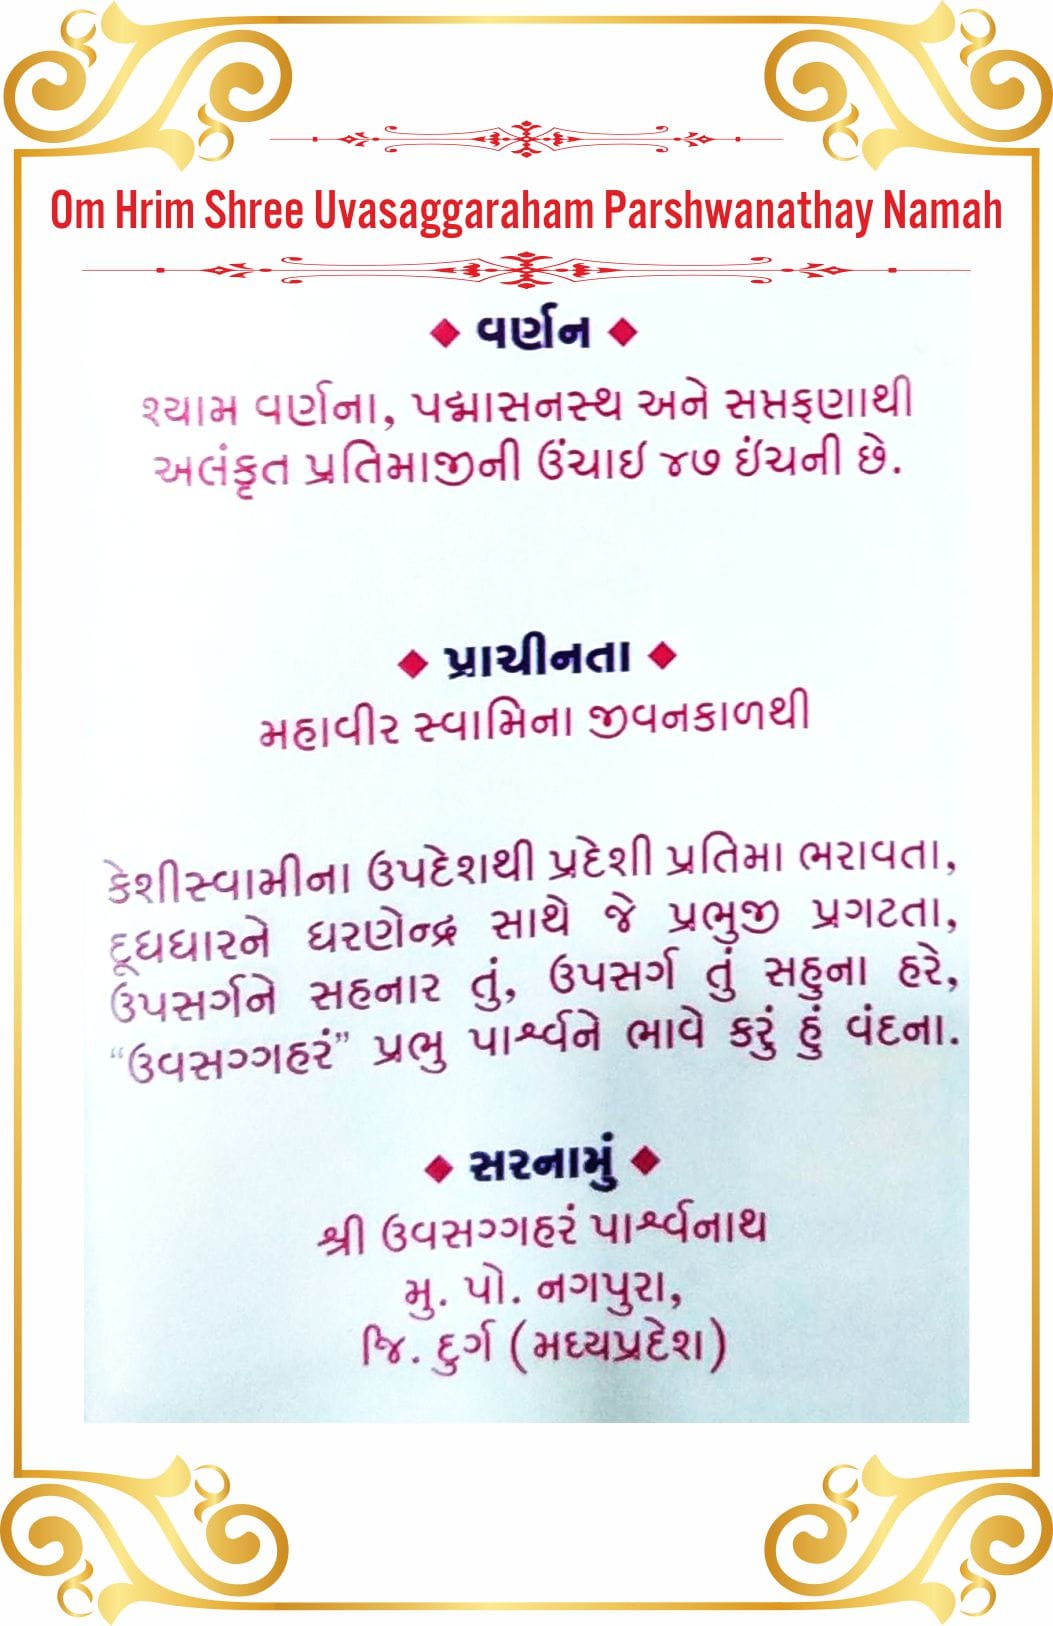 Om Hrim Shree Uvasaggaraham Parshwanathay Namah
વર્ણન
શ્યામ વર્ણના, પદ્માસનસ્થ અને સપ્તફણાથી
અલંકૃત પ્રતિમાજીની ઉંચાઇ ૪૭ ઈંચની છે.
પ્રાચીનતા
મહાવીર સ્વામિના જીવનકાળથી
કેશીસ્વામીના ઉપદેશથી પ્રદેશી પ્રતિમા ભરાવતા,
દૂધધારને ધરણેન્દ્ર સાથે જે પ્રભુજી પ્રગટતા,
ઉપસર્ગને સહનાર તું, ઉપસર્ગ તું સહુના હરે,
“ઉવસગ્ગહરં” પ્રભુ પાર્શ્વને ભાવે કરું હું વંદના.
સરનામું
શ્રી ઉવસગ્ગહરં પાર્શ્વનાથ
મુ. પો. નગપુરા,
જિ. દુર્ગ (મધ્યપ્રદેશ)